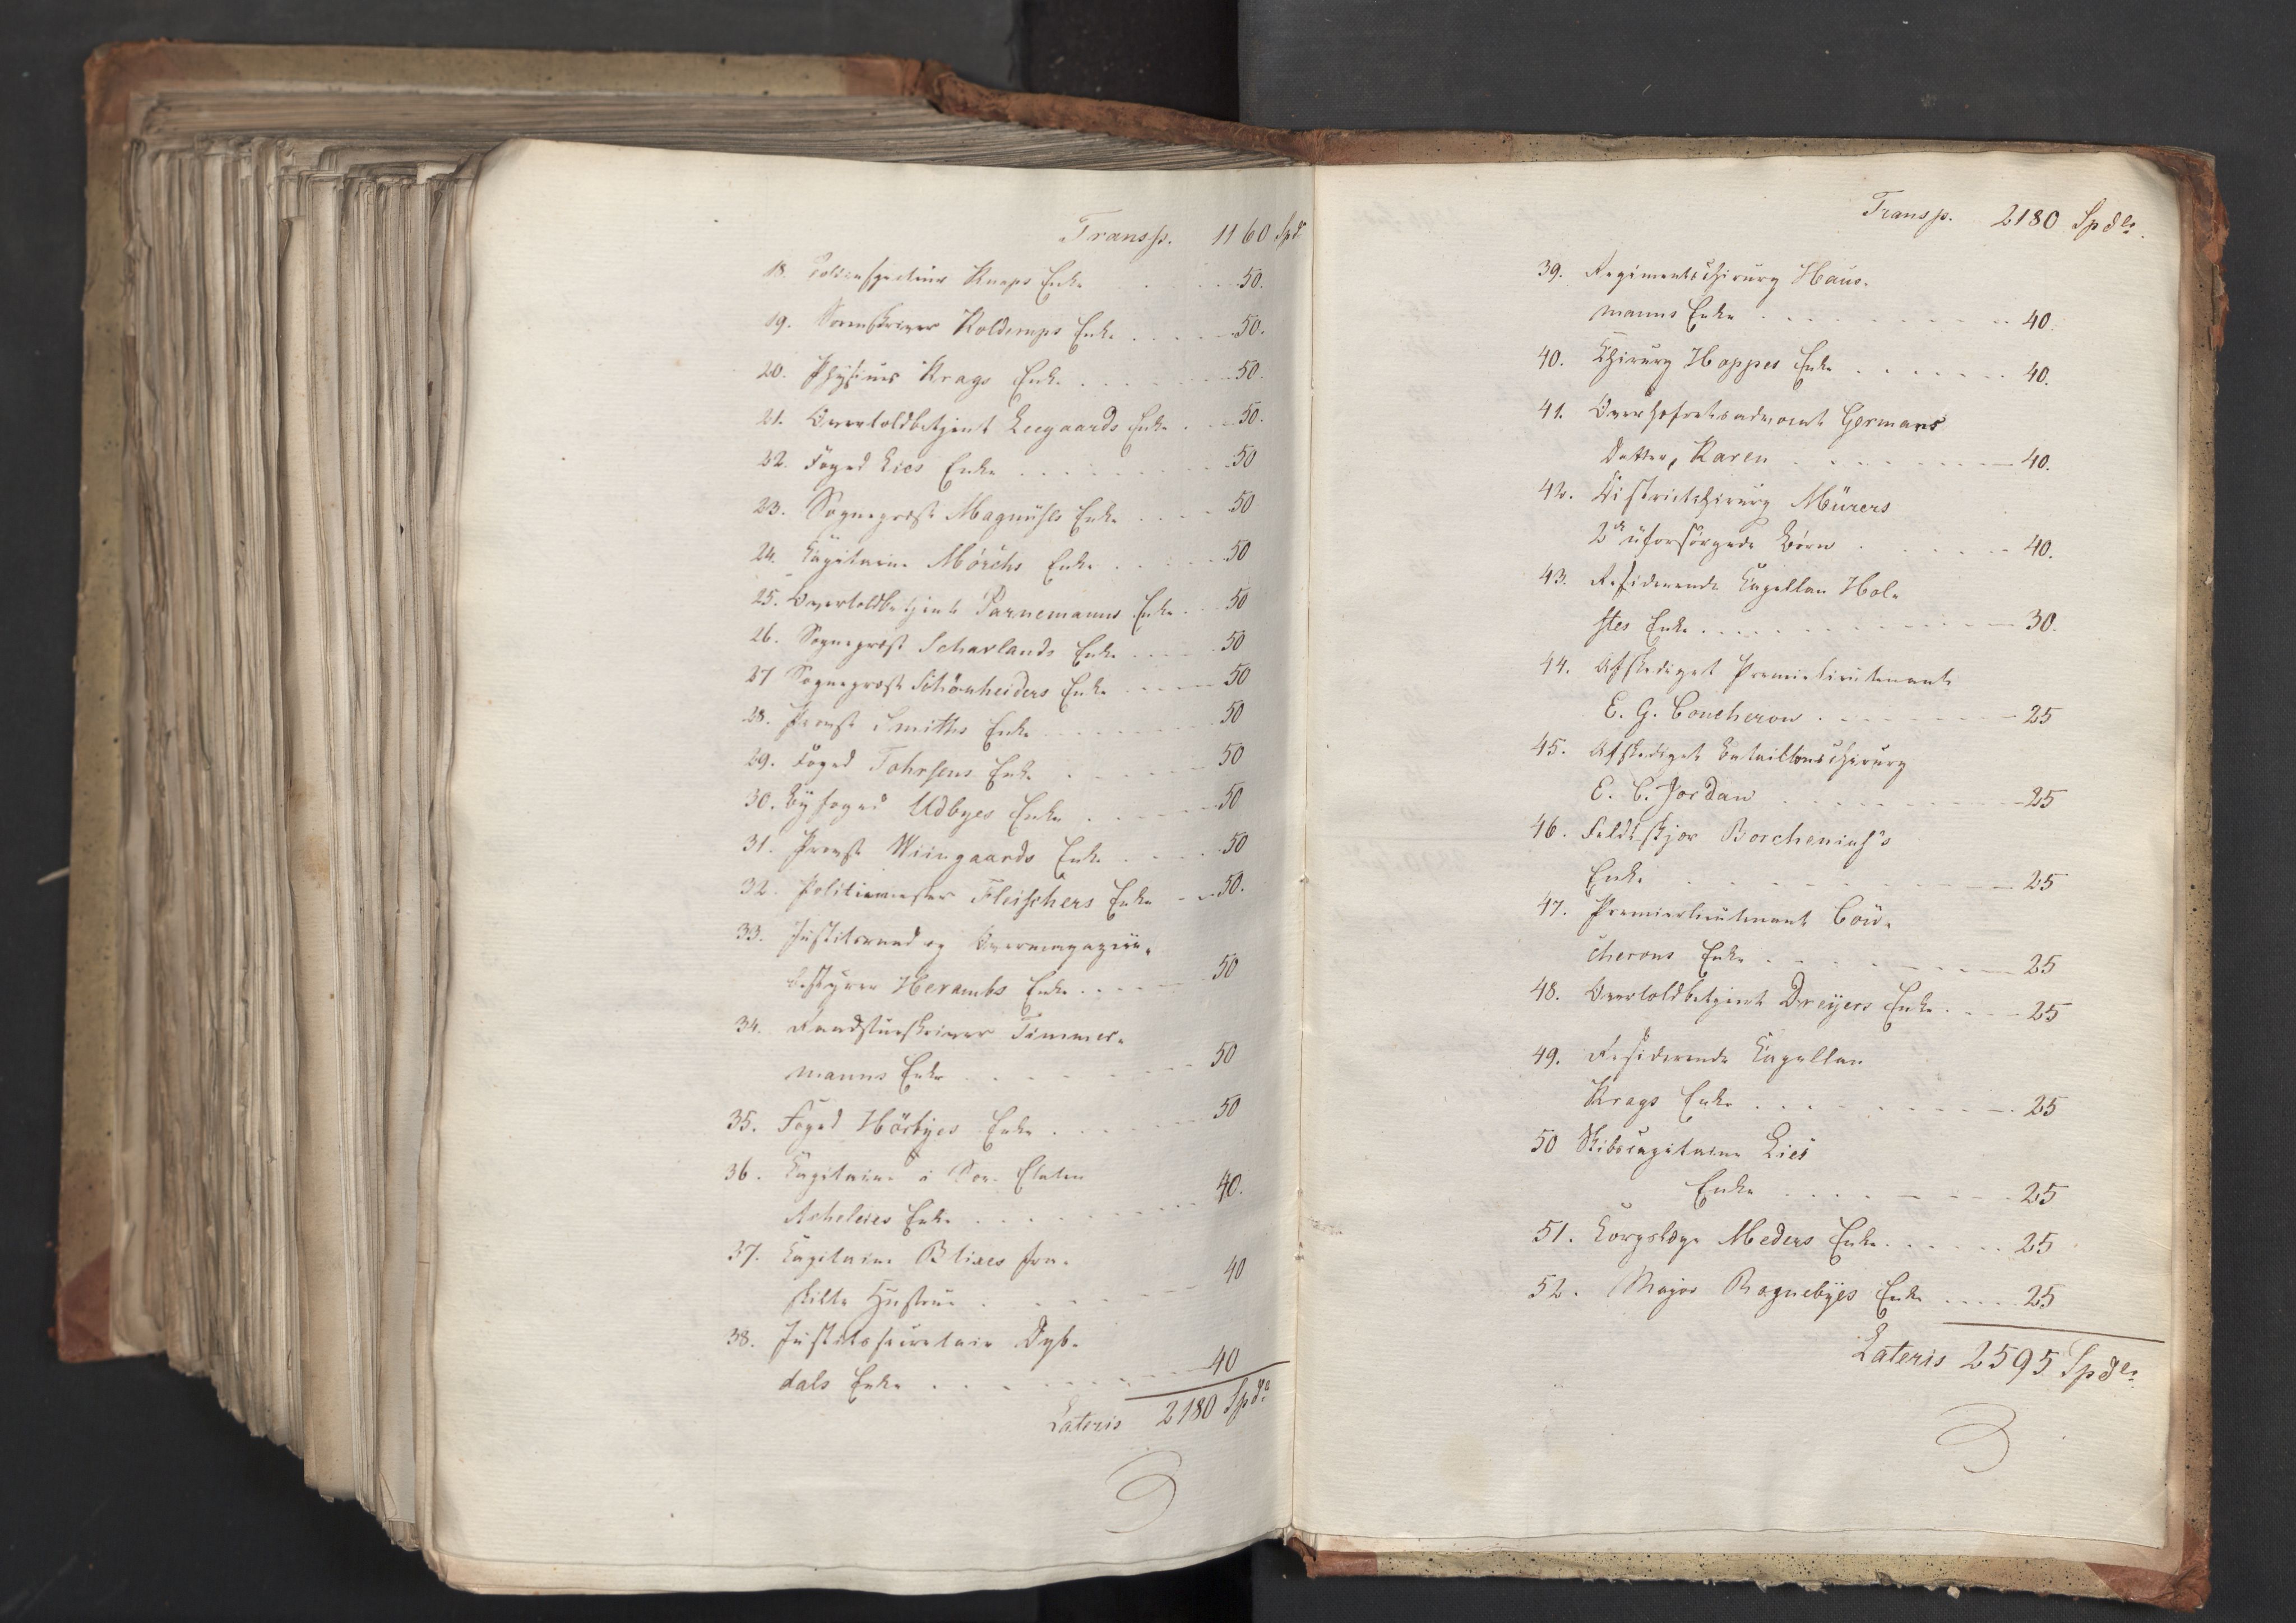 Transp. 1160 Spd
18. Toldinspecteur Knaps Enke . . . . 50.
19. Sorenskriver Koldemps Enke . . . . . 50.
20. Physicus Krags Enke . . . . . 50.
21. Overtoldbetjent Leegaards Enke . . . 50.
22. Foged Lies Enke . . . . . . 50
23. Sognepræst Magnuss Enke . . . . 50
24. Capitaine Mörchs Enke . . . . . 50
25. Overtoldbetjent Parnemanns Enke . . 50
26. Sognepræst Scharlands Enke . . . . 50
27 Sognepræst Schönheiders Enke . . . . 50
28. Provst Smiths Enke . . . . . 50
29. Foged Tohrsens Enke . . . . . 50
30. Byfoged Udbyes Enke . . . . . 50
31. Provst Wiingaards Enke . . . . 50
32. Politiemester Fleischers Enke . . 50.
33. Justitsraad og Overmagazin-
bestyrer Herambs Enke . . . . . 50
34. Raadstueskriver Timmer-
manns Enke . . . . . 50
35. Foged Hörbyes Enke . . . . . 50
36. Capitaine à la Suite
Enke . . . . . 40.
37. Capitaine Blixes fra-
skilte Hustrue . . . . . 40
38. Justitssecretair Dyb-
dals Enke . . . . . 40
Lateris 2180 Spd
Transp. 2180 Spdlr.
39. Regimentschirurg Haus-
manns Enke . . . . . 40.
40. Chirurg Hoppes Enke . . . . . 40.
41. Overhofretsadvocat Germans
Datter, Karen . . . . . 40.
42. Districtschirurg Mürers
2de uforsörgede Börn . . . . 40.
43. Residerende Capellan Hol-
stes Enke . . . . . 30.
44. Afskediget Premierlieutenant
E. G. Coucheron . . . . . 25
45. Afskediget Bataillonschirurg
E. C. Jordan . . . . . 25
46. Feldtskjær Borchenius's
Enke . . . . . 25
47. Premierlieutenant Cou-
cherons Enke . . . . . 25
48. Overtoldbetjent Dreyers Enke . . . 25
49. Residerende Capellan
Krags Enke . . . . . 25
50 Skibscapitaine Lies
Enke . . . . . 25
51. Corpslæge Meders Enke . . . . . 25
52. Major Rognebyes Enke . . . . 25
Lateris 2595 Spdlr.